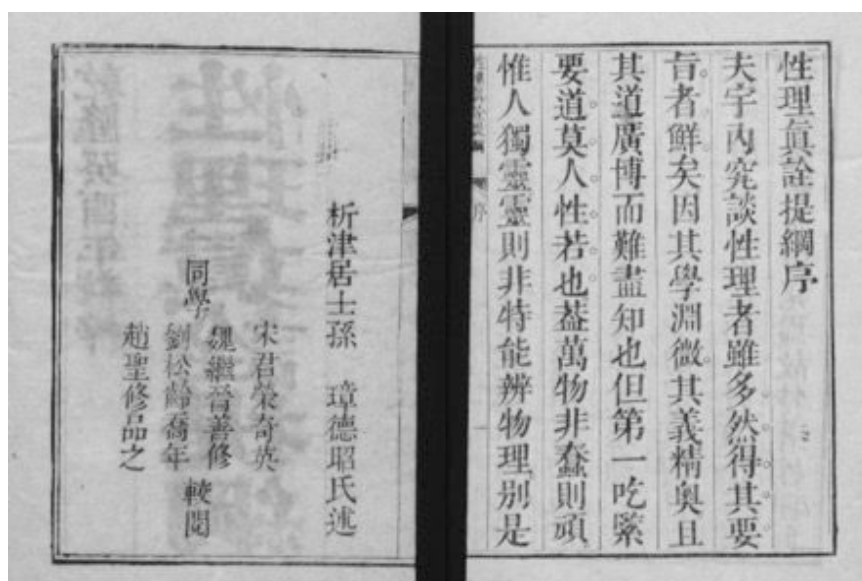 性理眞詮提綱序
夫宇內究談性理者雖多然得其要
旨者鮮矣因其學淵微其義精奥且
其道廣博而難盡知也但第一吃緊
要道莫人性若也葢萬物非蠢則頑
惟人獨靈靈則非特能辨物理别是
序
析津居士孫　璋德昭氏述
宋君榮奇英
同學　魏繼晉善修　較閱
劉松齡喬年
趙聖修品之